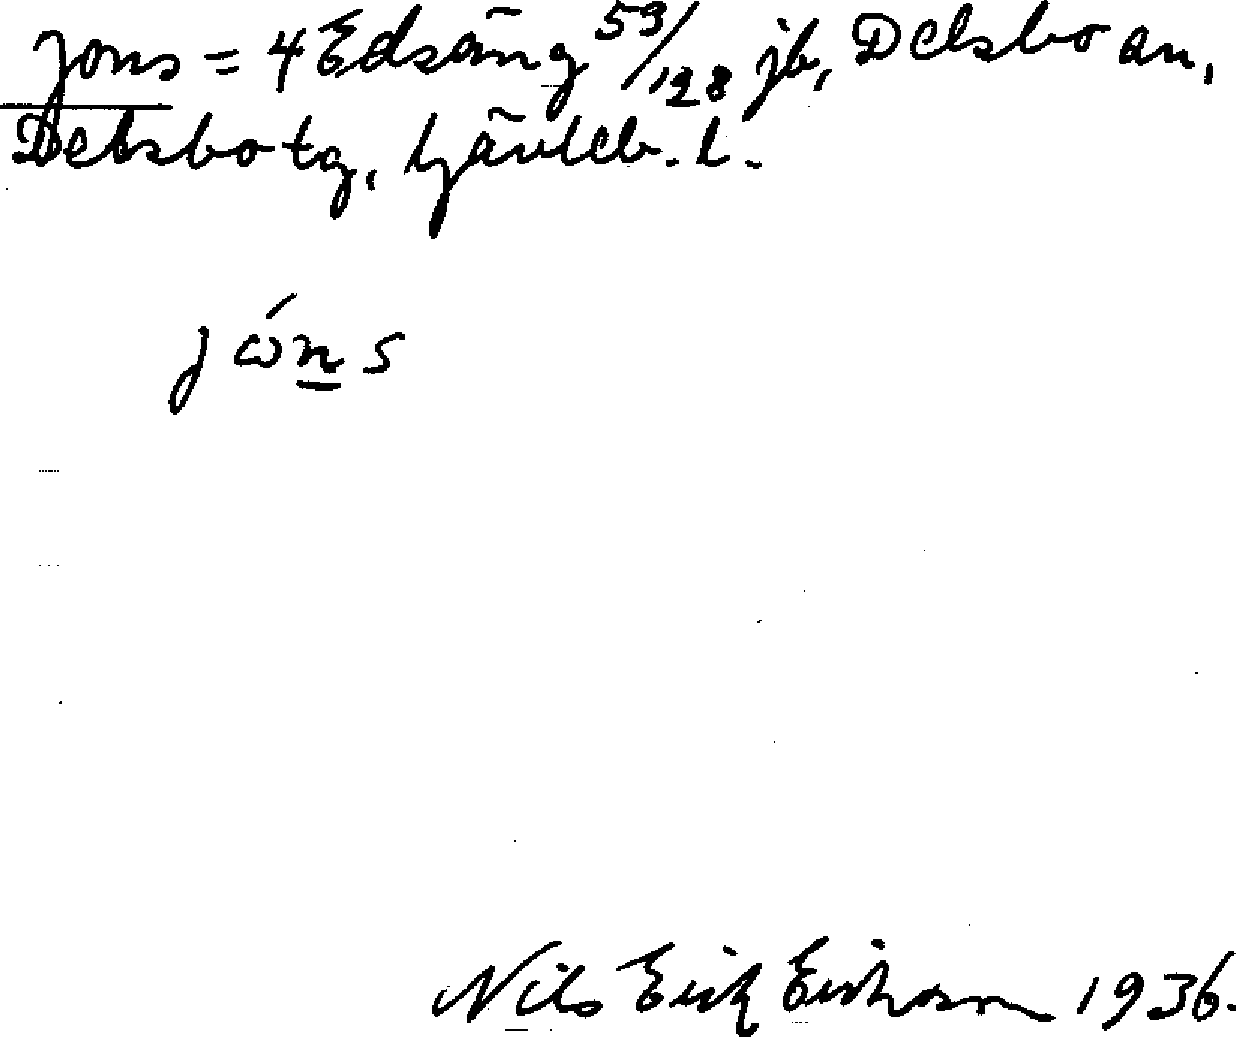 Jons = 4 Edsäng 53/128 jb, Delsbo an,
Delsbo tg, Gävleb. l.
jώn̲s
Nils Erik Eriksson 1936.